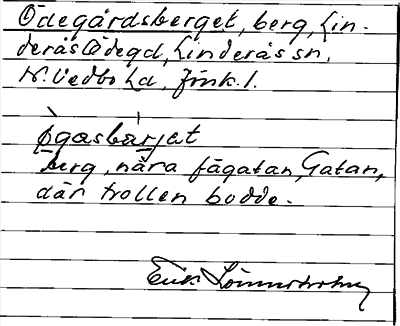 Ödegårdsberget, berg, Lin-
derås Ödegd, Linderås sn,
N. Vedbo hd, Jönk. l.
øgasbärjat
berg, nära fägatan, Gatan,
där trollen bodde.